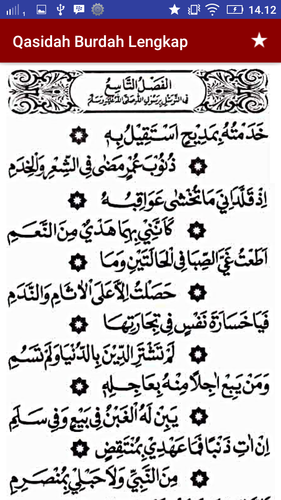 14.12
Qasidah Burdah Lengkap
الفَصْلُ التَّاسِعُ
فِي التَّوَسُّلِ بِرَسُوْلِ اللهِ صَلَّى اللهُ عَلَيْهِ وَسَلَّمَ
خَدَمْتُهُ بِمَدِيْحٍ اَسْتَقِيْلُ بِهِ
ذُنُوْبَ عُمْرٍ مَضَى فِي الشِّعْرِ وَالْخِدَمِ
اِذْ قَلَّدَانِيَ مَا تُخْشَى عَوَاقِبُهُ
كَاَنَّنِيْ بِهِمَا هَدْيٌ مِنَ النَّعَمِ
اَطَعْتُ غَيَّ الصِّبَا فِي الْحَالَتَيْنِ وَمَا
حَصَلْتُ اِلاَّ عَلَى الْاٰثَامِ وَالنَّدَمِ
فَيَا خَسَارَةَ نَفْسٍ فِيْ تِجَارَتِهَا
لَمْ تَشْتَرِ الدِّيْنَ بِالدُّنْيَا وَلَمْ تَسُمِ
وَمَنْ يَبِعْ اٰجِلًا مِنْهُ بِعَاجِلِهِ
يَبِنْ لَهُ الْغَبْنُ فِيْ بَيْعٍ وَفِيْ سَلَمِ
اِنْ اٰتِ ذَنْبًا فَمَا عَهْدِيْ بِمُنْتَقِضٍ
مِنَ النَّبِيِّ وَلَا حَبْلِيْ بِمُنْصَرِمِ